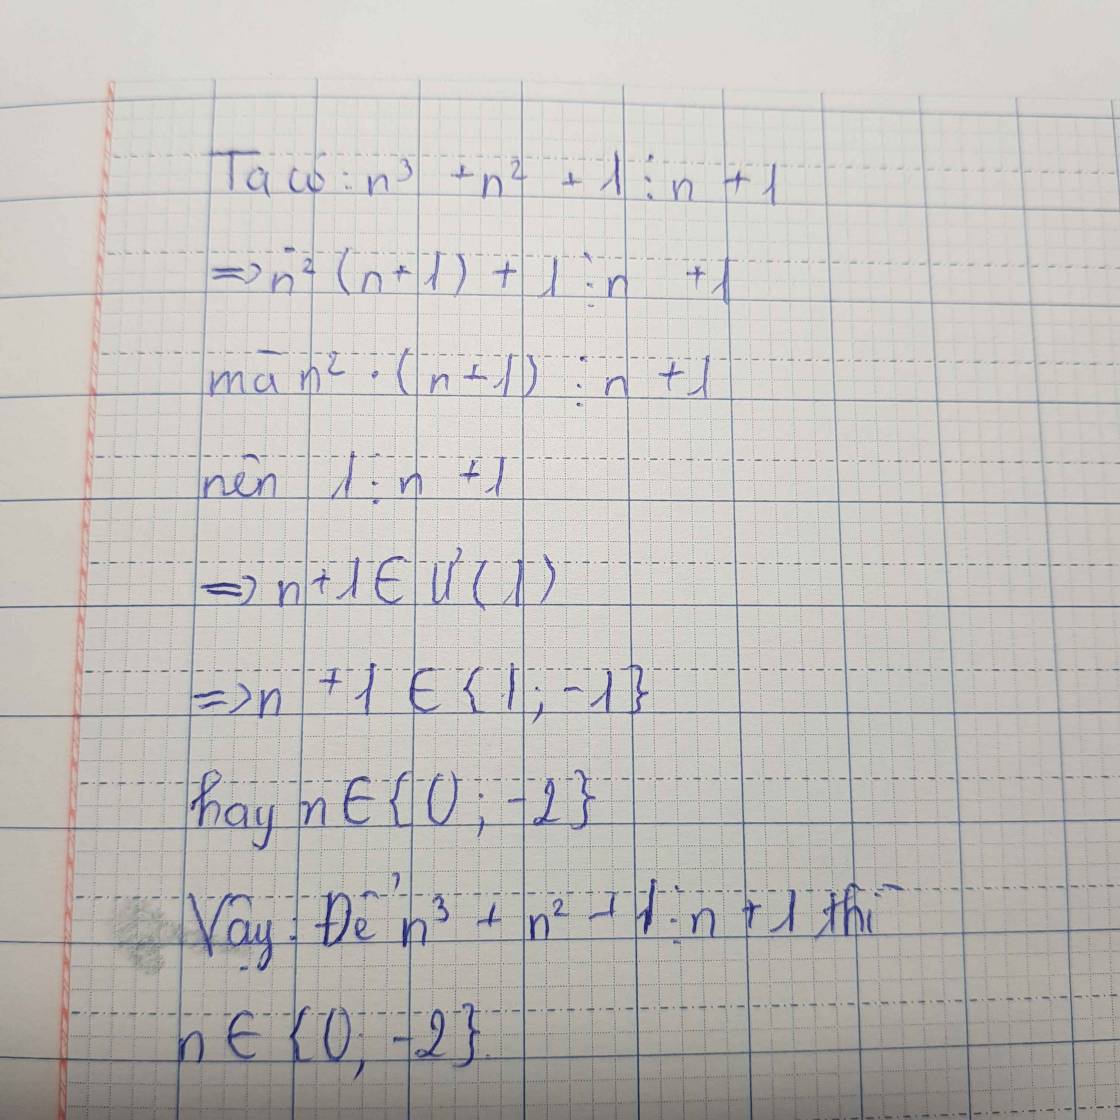 Ta có : n³ + n² + 1 ⋮ n + 1
=> n² (n+1) + 1 ⋮ n + 1
mà n² . (n+1) ⋮ n + 1
nên 1 ⋮ n + 1
=> n + 1 ∈ Ư(1)
=> n + 1 ∈ {1; -1}
hay n ∈ {0; -2}
Vậy: Để n³ + n² + 1 ⋮ n + 1 thì
n ∈ {0; -2}.